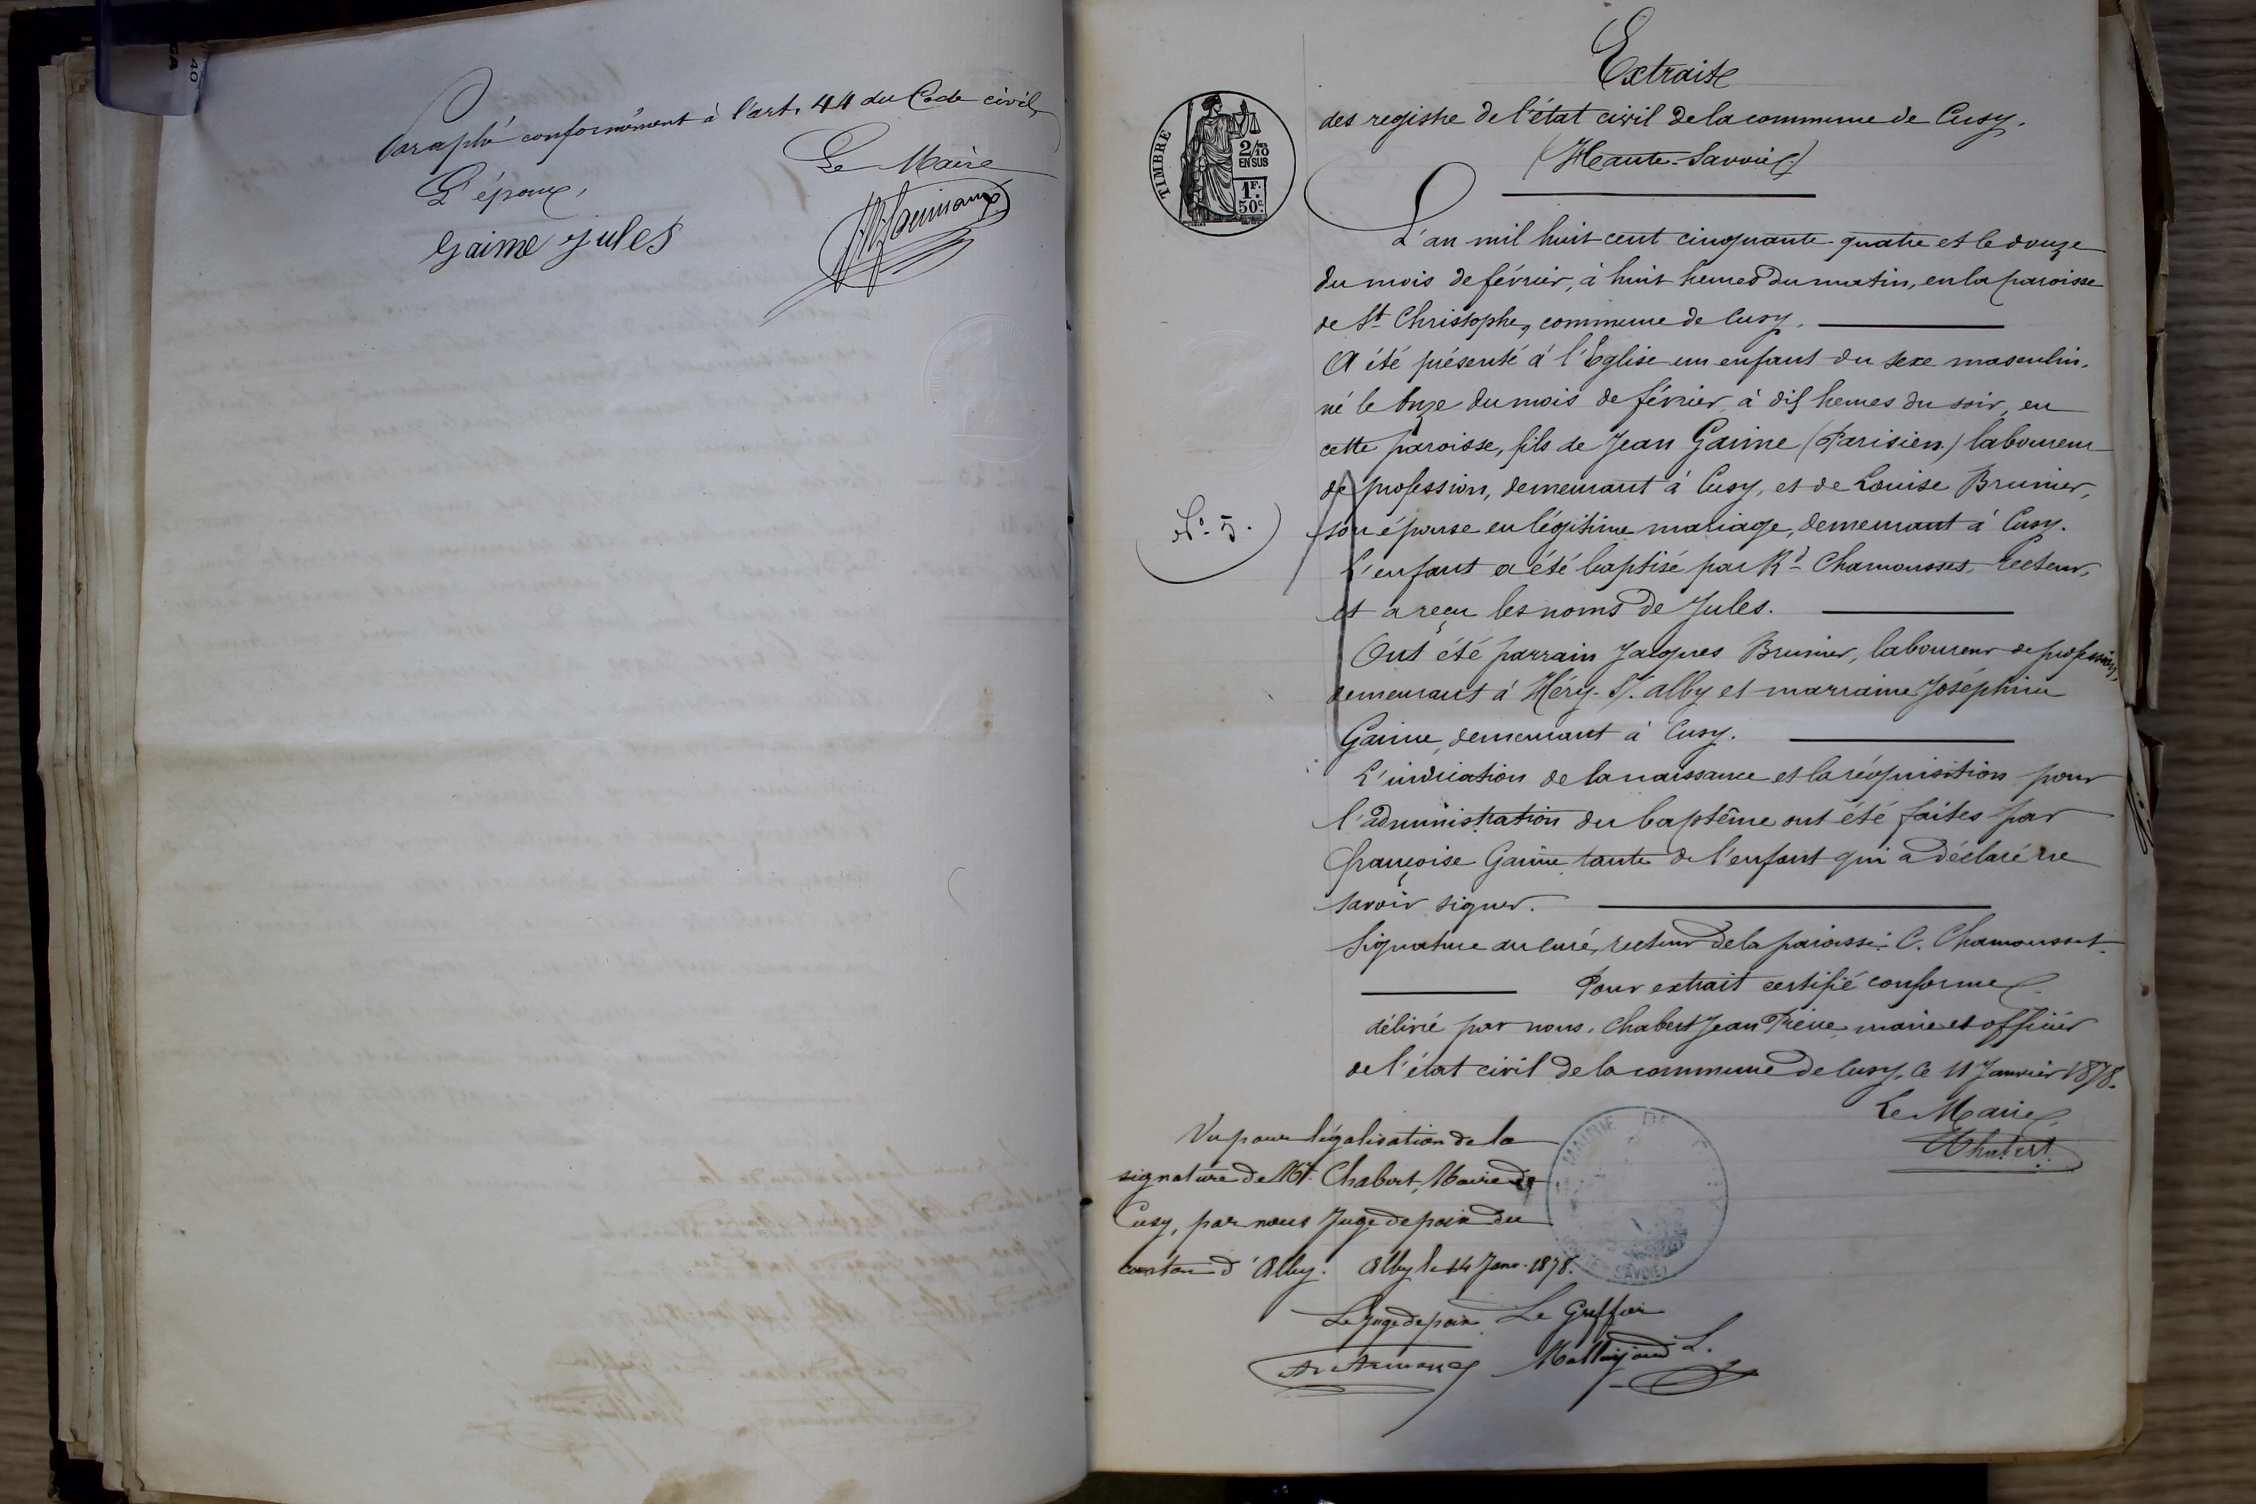 Paraphé conformément à l'art. 44 du Code civil,
Le Maire
L'époux,
Gaime Jules
Extrait
des registre de l'état civil de la commune de Cusy.
(Haute-Savoie)
TIMBRE
2/10
EN SUS
1F.
50c.
L'an mil huit cent cinquante-quatre et le douze
du mois de février, à huit heures du matin, en la paroisse
de St Christophe, commune de Cusy.
A été présenté à l'Eglise un enfant du sexe masculin,
né le onze du mois de février à dix heures du soir, en
cette paroisse, fils de Jean Gaime (Parisien) laboureur
de profession, demeurant à Cusy, et de Louise Brunier,
son épouse en légitime mariage, demeurant à Cusy.
N°. 5.
L'enfant a été baptisé par Rd Chamousset, recteur,
et a reçu les noms de Jules.
Ont été parrain Jacques Brunier, laboureur de profession,
demeurant à Héry-S. Alby et marraine Joséphine
Gaime, demeurant à Cusy.
L'indication de la naissance et la réquisition pour
l'administration du baptême ont été faites par
françoise Gaime, tante de l'enfant qui a déclaré ne
savoir signer.
Signature du curé, recteur de la paroisse: C. Chamousset.
Pour extrait certifié conforme
délivré par nous, Chabert Jean Pierre, maire et officier
de l'état civil de la commune de Cusy, ce 11 Janvier 1878.
Le Maire
Chabert
Vu pour légalisation de la
signature de Mr. Chabert, Maire de
Cusy, par nous Juge de paix du
canton d'Alby. Alby le 14 Janv. 1878.
MAIRIE DE
SAVOIE
Le Juge de paix Le Greffier